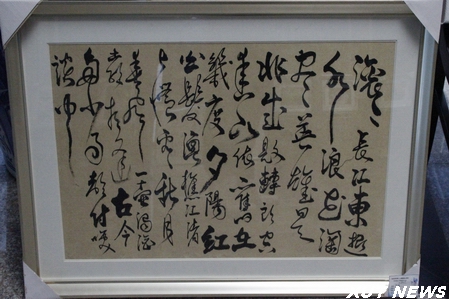 滚滚長江東逝
水浪花淘
尽英雄是
非成敗轉頭空
青山依舊在
幾度夕陽紅
白髮漁樵江渚
上慣看秋月
春風一壺濁酒
喜相逢古今
多少事都付笑
談中
XUT NEWS